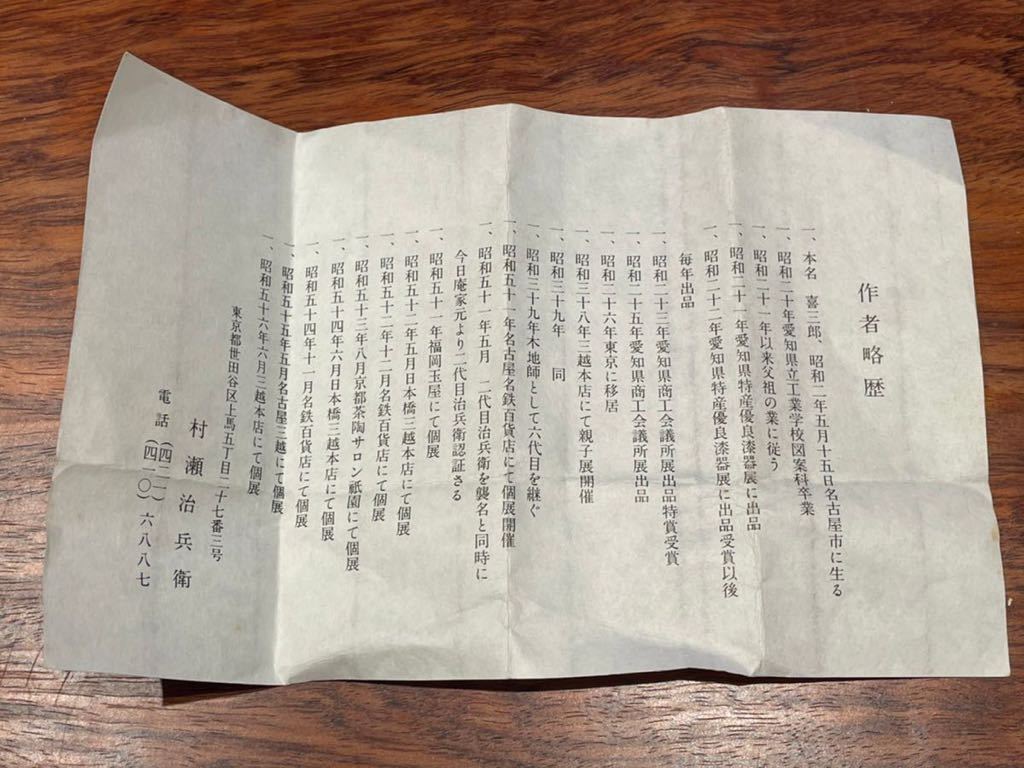 作者略歴
一、本名　喜三郎、昭和二年五月十五日名古屋市に生る
一、昭和二十年愛知県立工業学校図案科卒業
一、昭和二十一年以来父祖の業に従う
一、昭和二十一年愛知県特産優良漆器展に出品
一、昭和二十二年愛知県特産優良漆器展に出品受賞以後
毎年出品
一、昭和二十三年愛知県商工会議所展出品特賞受賞
一、昭和二十五年愛知県商工会議所展出品
一、昭和二十六年東京に移居
一、昭和三十八年三越本店にて親子展開催
一、昭和三十九年　同
一、昭和三十九年木地師として六代目を継ぐ
一、昭和五十一年名古屋名鉄百貨店にて個展開催
一、昭和五十一年五月　二代目治兵衛を襲名と同時に
今日庵家元より二代目治兵衛認証さる
一、昭和五十一年福岡玉屋にて個展
一、昭和五十二年五月日本橋三越本店にて個展
一、昭和五十二年十二月名鉄百貨店にて個展
一、昭和五十三年八月京都茶陶サロン祇園にて個展
一、昭和五十四年六月日本橋三越本店にて個展
一、昭和五十四年十一月名鉄百貨店にて個展
一、昭和五十五年五月名古屋三越にて個展
一、昭和五十六年六月三越本店にて個展
東京都世田谷区上馬五丁目二十七番三号
村瀬治兵衛
電話（四二一）
（四一〇）六八八七